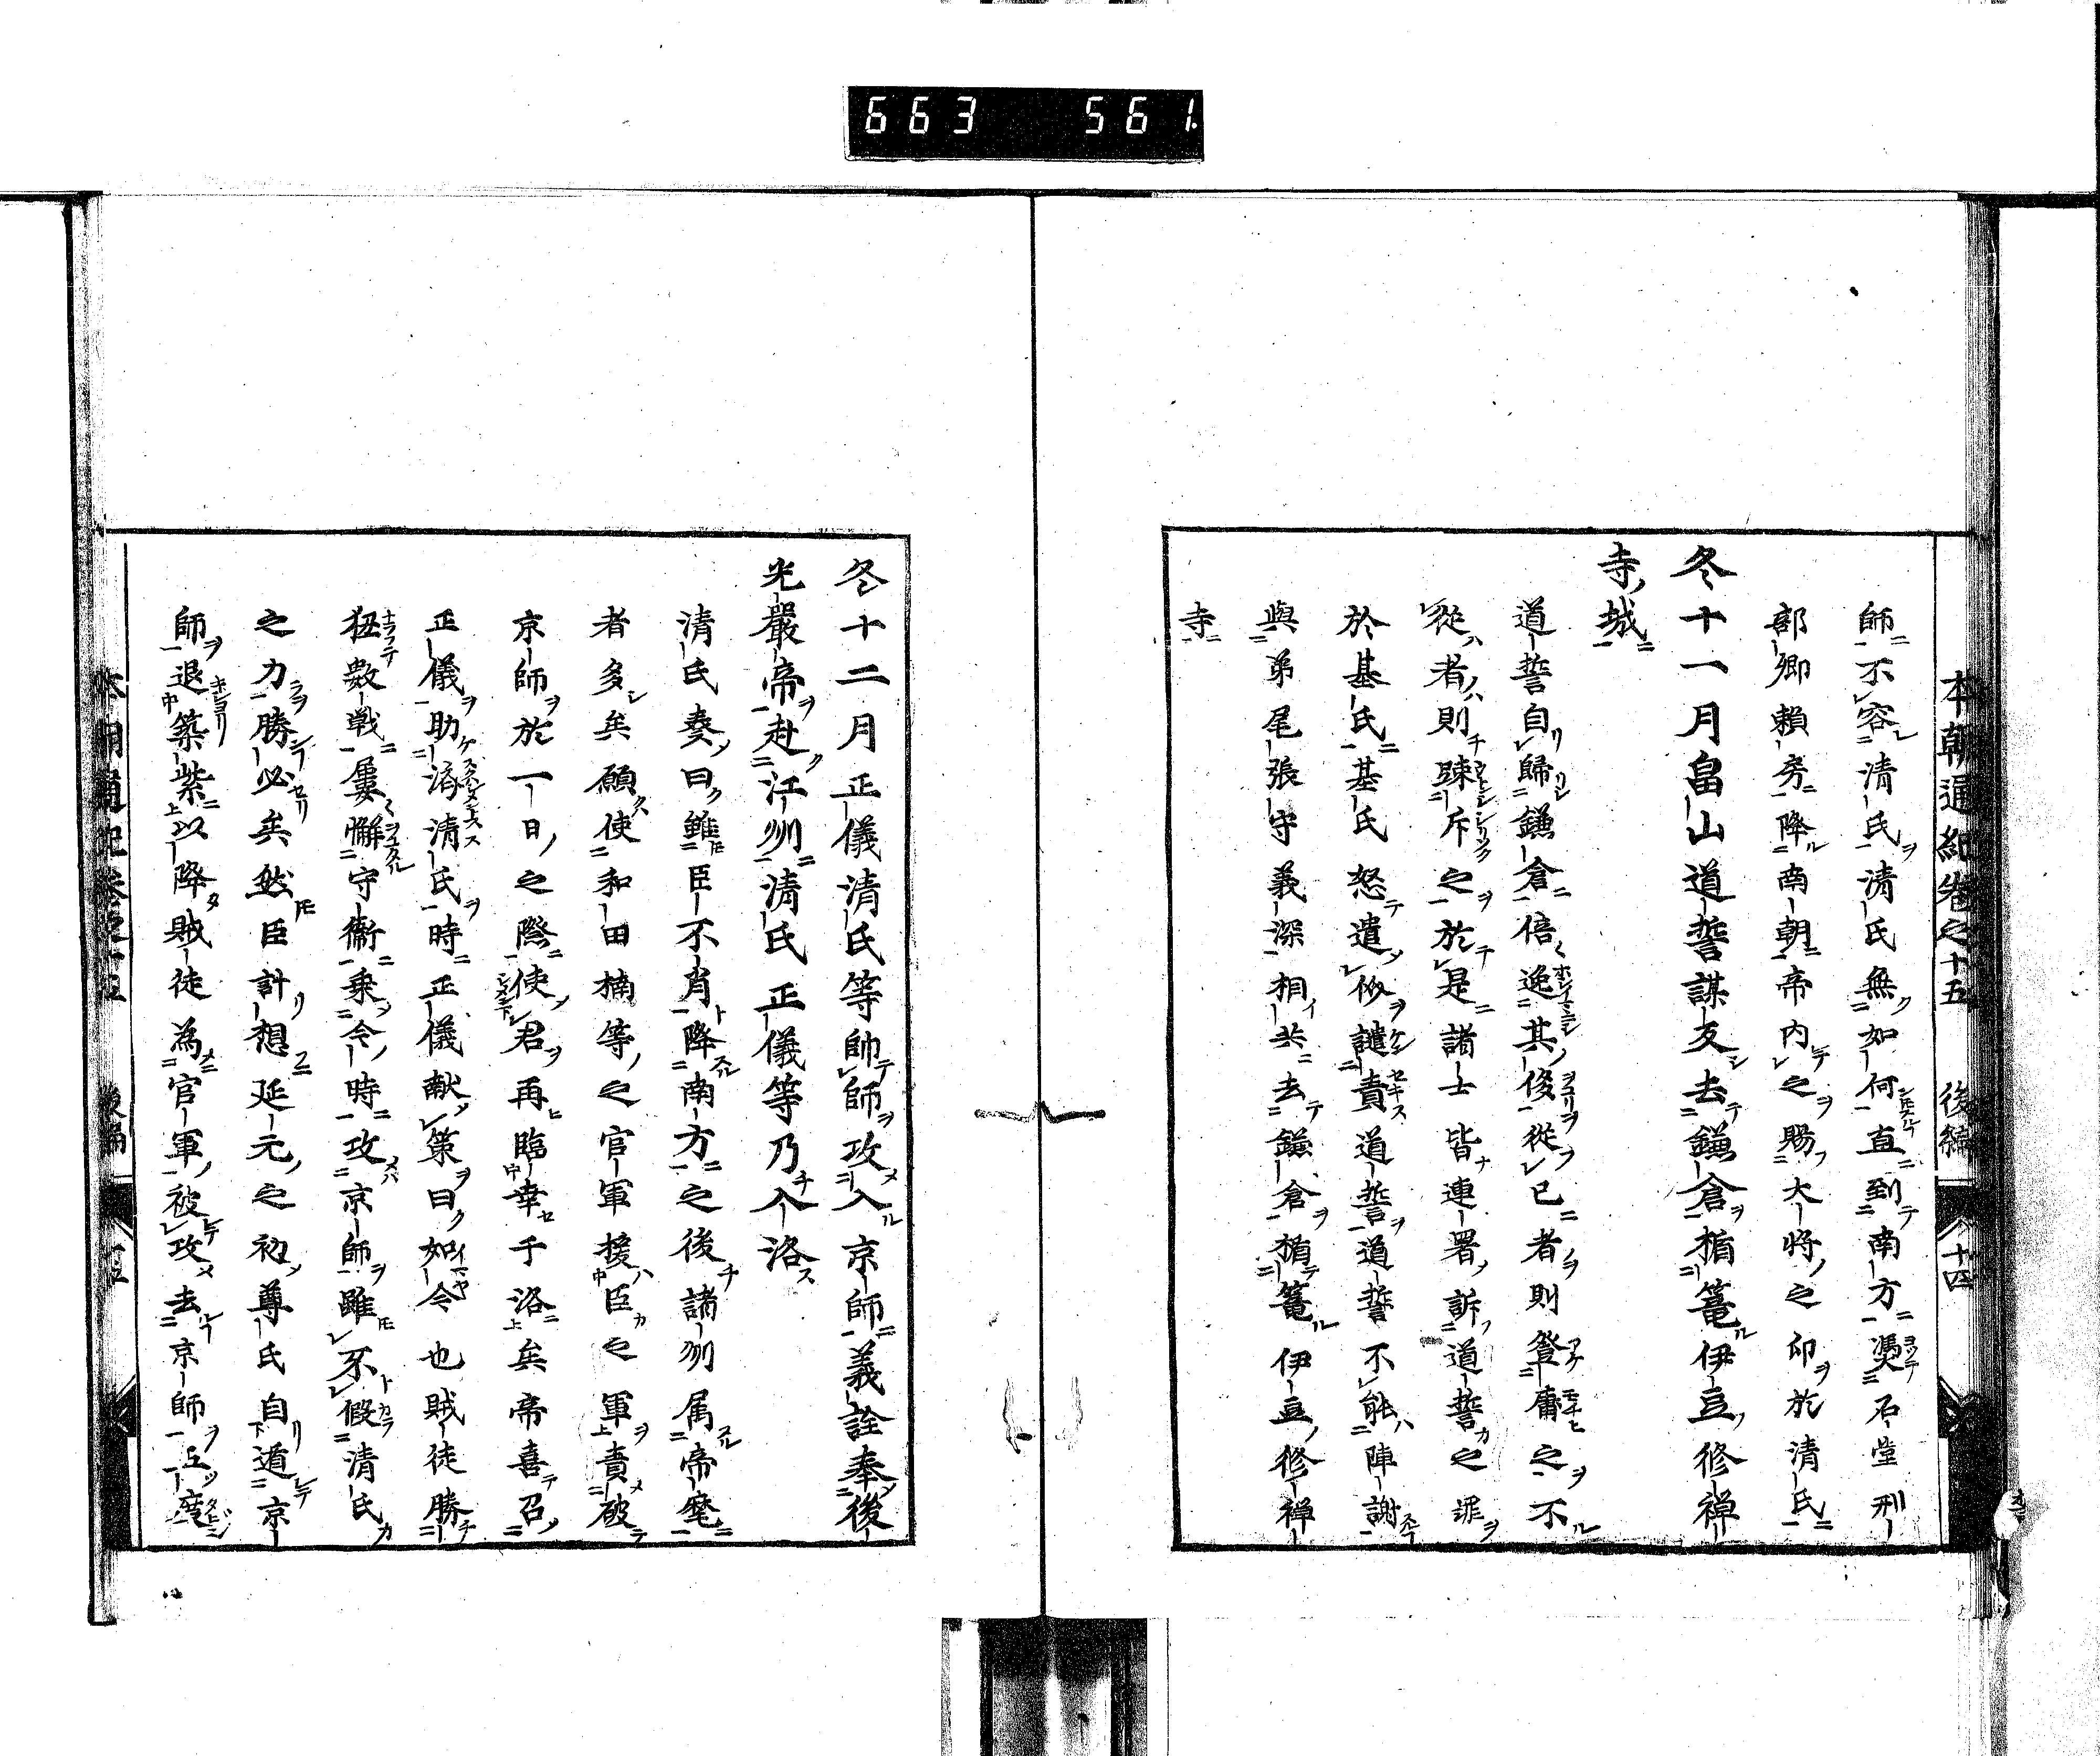 663 561
本朝通紀卷之十五 後編 十四
師不容清氏清氏無如何直到南方憑石堂刑
部卿賴房降南朝帝内之賜大將之印於清氏
冬十一月畠山道誓謀反去鎌倉楯篭伊豆修禅
寺城
道誓自歸鎌倉倍逸其侈從已者則登庸之不
從者則踈斥之於是諸士皆連署訴道誓之罪
於基氏基氏怒遣使譴責道誓道誓不能陣謝
與弟尾張守義深相共去鎌倉楯篭伊豆修禅
寺
冬十二月正儀清氏等帥師攻入京師義詮奉後
光嚴帝赴江州清氏正儀等乃入洛
清氏奏曰雖臣不肖降南方之後諸州属帝麾
者多矣願使和田楠等之官軍援臣之軍責破
京師於一日之際使君再臨幸于洛矣帝喜召
正儀助済清氏時正儀献策曰如今也賊徒勝
狃數戦屢懈守衞乗今時攻京師雖不假清氏
之力勝必矣然臣計想延元之初尊氏自遁京
師退築紫以降賊徒為官軍被攻去京師五度